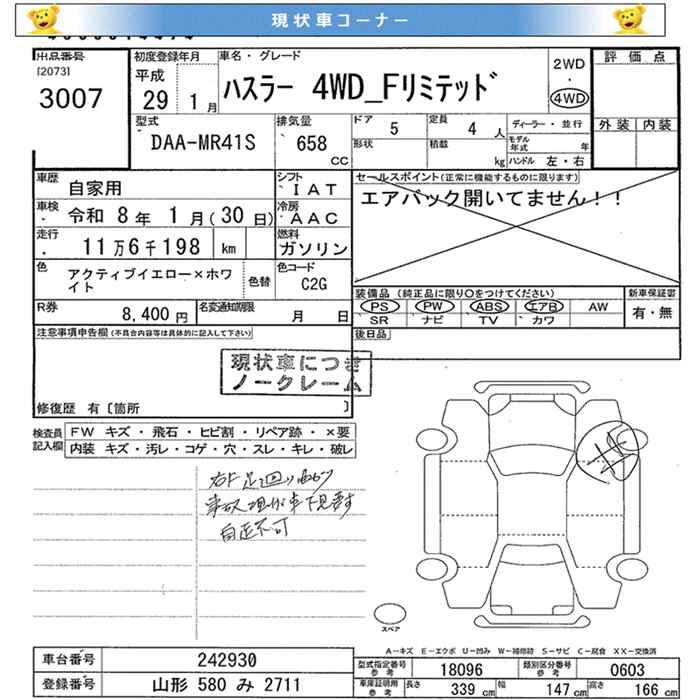 現状車コーナー
出品番号
[2073]
3007
初度登録年月
平成
29年 1月
車名・グレード
ハスラー 4WD_Fリミテッド
2WD
・
4WD
評価点
外装 内装
型式
DAA-MR41S
排気量
658
CC
ドア
5
定員
4人
形状
積載
kg
ディーラー・並行
モデル
年式
年
ハンドル 左・右
車歴
自家用
シフト
IAT
セールスポイント(正常に機能するものに限ります)
エアバック開いてません!!
車検
令和 8年 1月(30日)
冷房
AAC
走行
11万6千198 km
燃料
ガソリン
色
アクティブイエロー×ホワ
イト
色替
色コード
C2G
装備品(純正品に限り○をつけてください)
PS PW ABS エアB AW
SR ナビ TV カワ
新車保証書
有・無
R券
8,400円
名変通知期限
月 日
後日品
注意事項申告欄(不具合内容等は具体的に記入して下さい)
現状車につき
ノークレーム
修復歴 有〔箇所 〕
検査員
記入欄
FW キズ・飛石・ヒビ割・リペア跡・×要
内装 キズ・汚レ・コゲ・穴・スレ・キレ・破レ
右F足廻り曲り
事故現状車下見要
自走不可
スペア
A－キズ E－エクボ U－凹み W－補修跡 S－サビ C－腐食 XX－交換済
車台番号
242930
登録番号
山形 580 み 2711
型式指定番号
参考
18096
類別区分番号
参考
0603
車庫証明用
参考
長さ
339 cm
幅
147 cm
高さ
166 cm